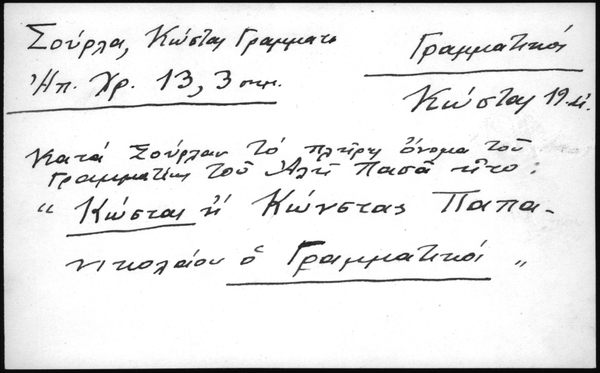 Σούρλα, Κώστας Γραμματι
Γραμματικός
Ἠπ. Χρ. 13, 3 σημ.
Κώστας 19 αἰ.
Κατά Σούρλαν τό πλῆρες ὄνομα τοῦ
Γραμματικοῦ τοῦ Ἀλῆ Πασᾶ ἦτο:
“ Κώστας ἤ Κώνστας Παπα-
νικολάου ὁ Γραμματικός „